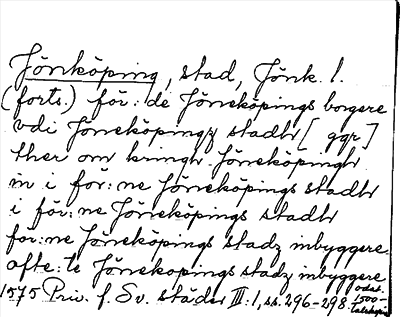 Jönköping, stad, Jönk. l.
(forts.) för:de Jöneköpings borgere
vdi Joneköpingz stadh [ ggr]
ther om kringh Jöneköpingh
in i för:ne Jöneköpings stadh
i för:ne Jöneköpings stadh
for:ne Jöneköpings stadz inbyggere
ofte:te Jöneköpings stadz inbyggere
1575 Priv. f. Sv. städer III:1, ss. 296-298. odat. 1500-